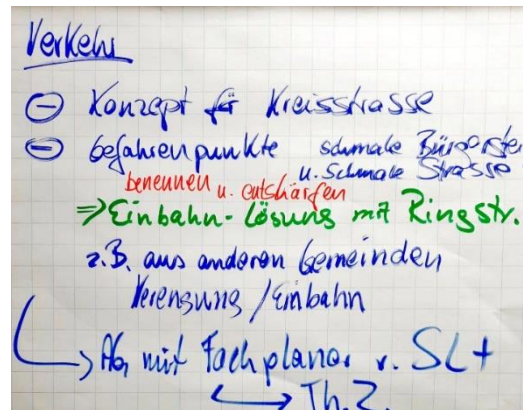 Verkehr
⊖ Konzept für Kreisstrasse
⊖ Gefahrenpunkte schmale Bürgerste
u. Schmale Strasse
benennen u. entschärfen
⇒ Einbahn-Lösung mit Ringstr.
z.B. aus anderen Gemeinden
Verengung / Einbahn
mit Fachplaner v. SL+
Th.Z.